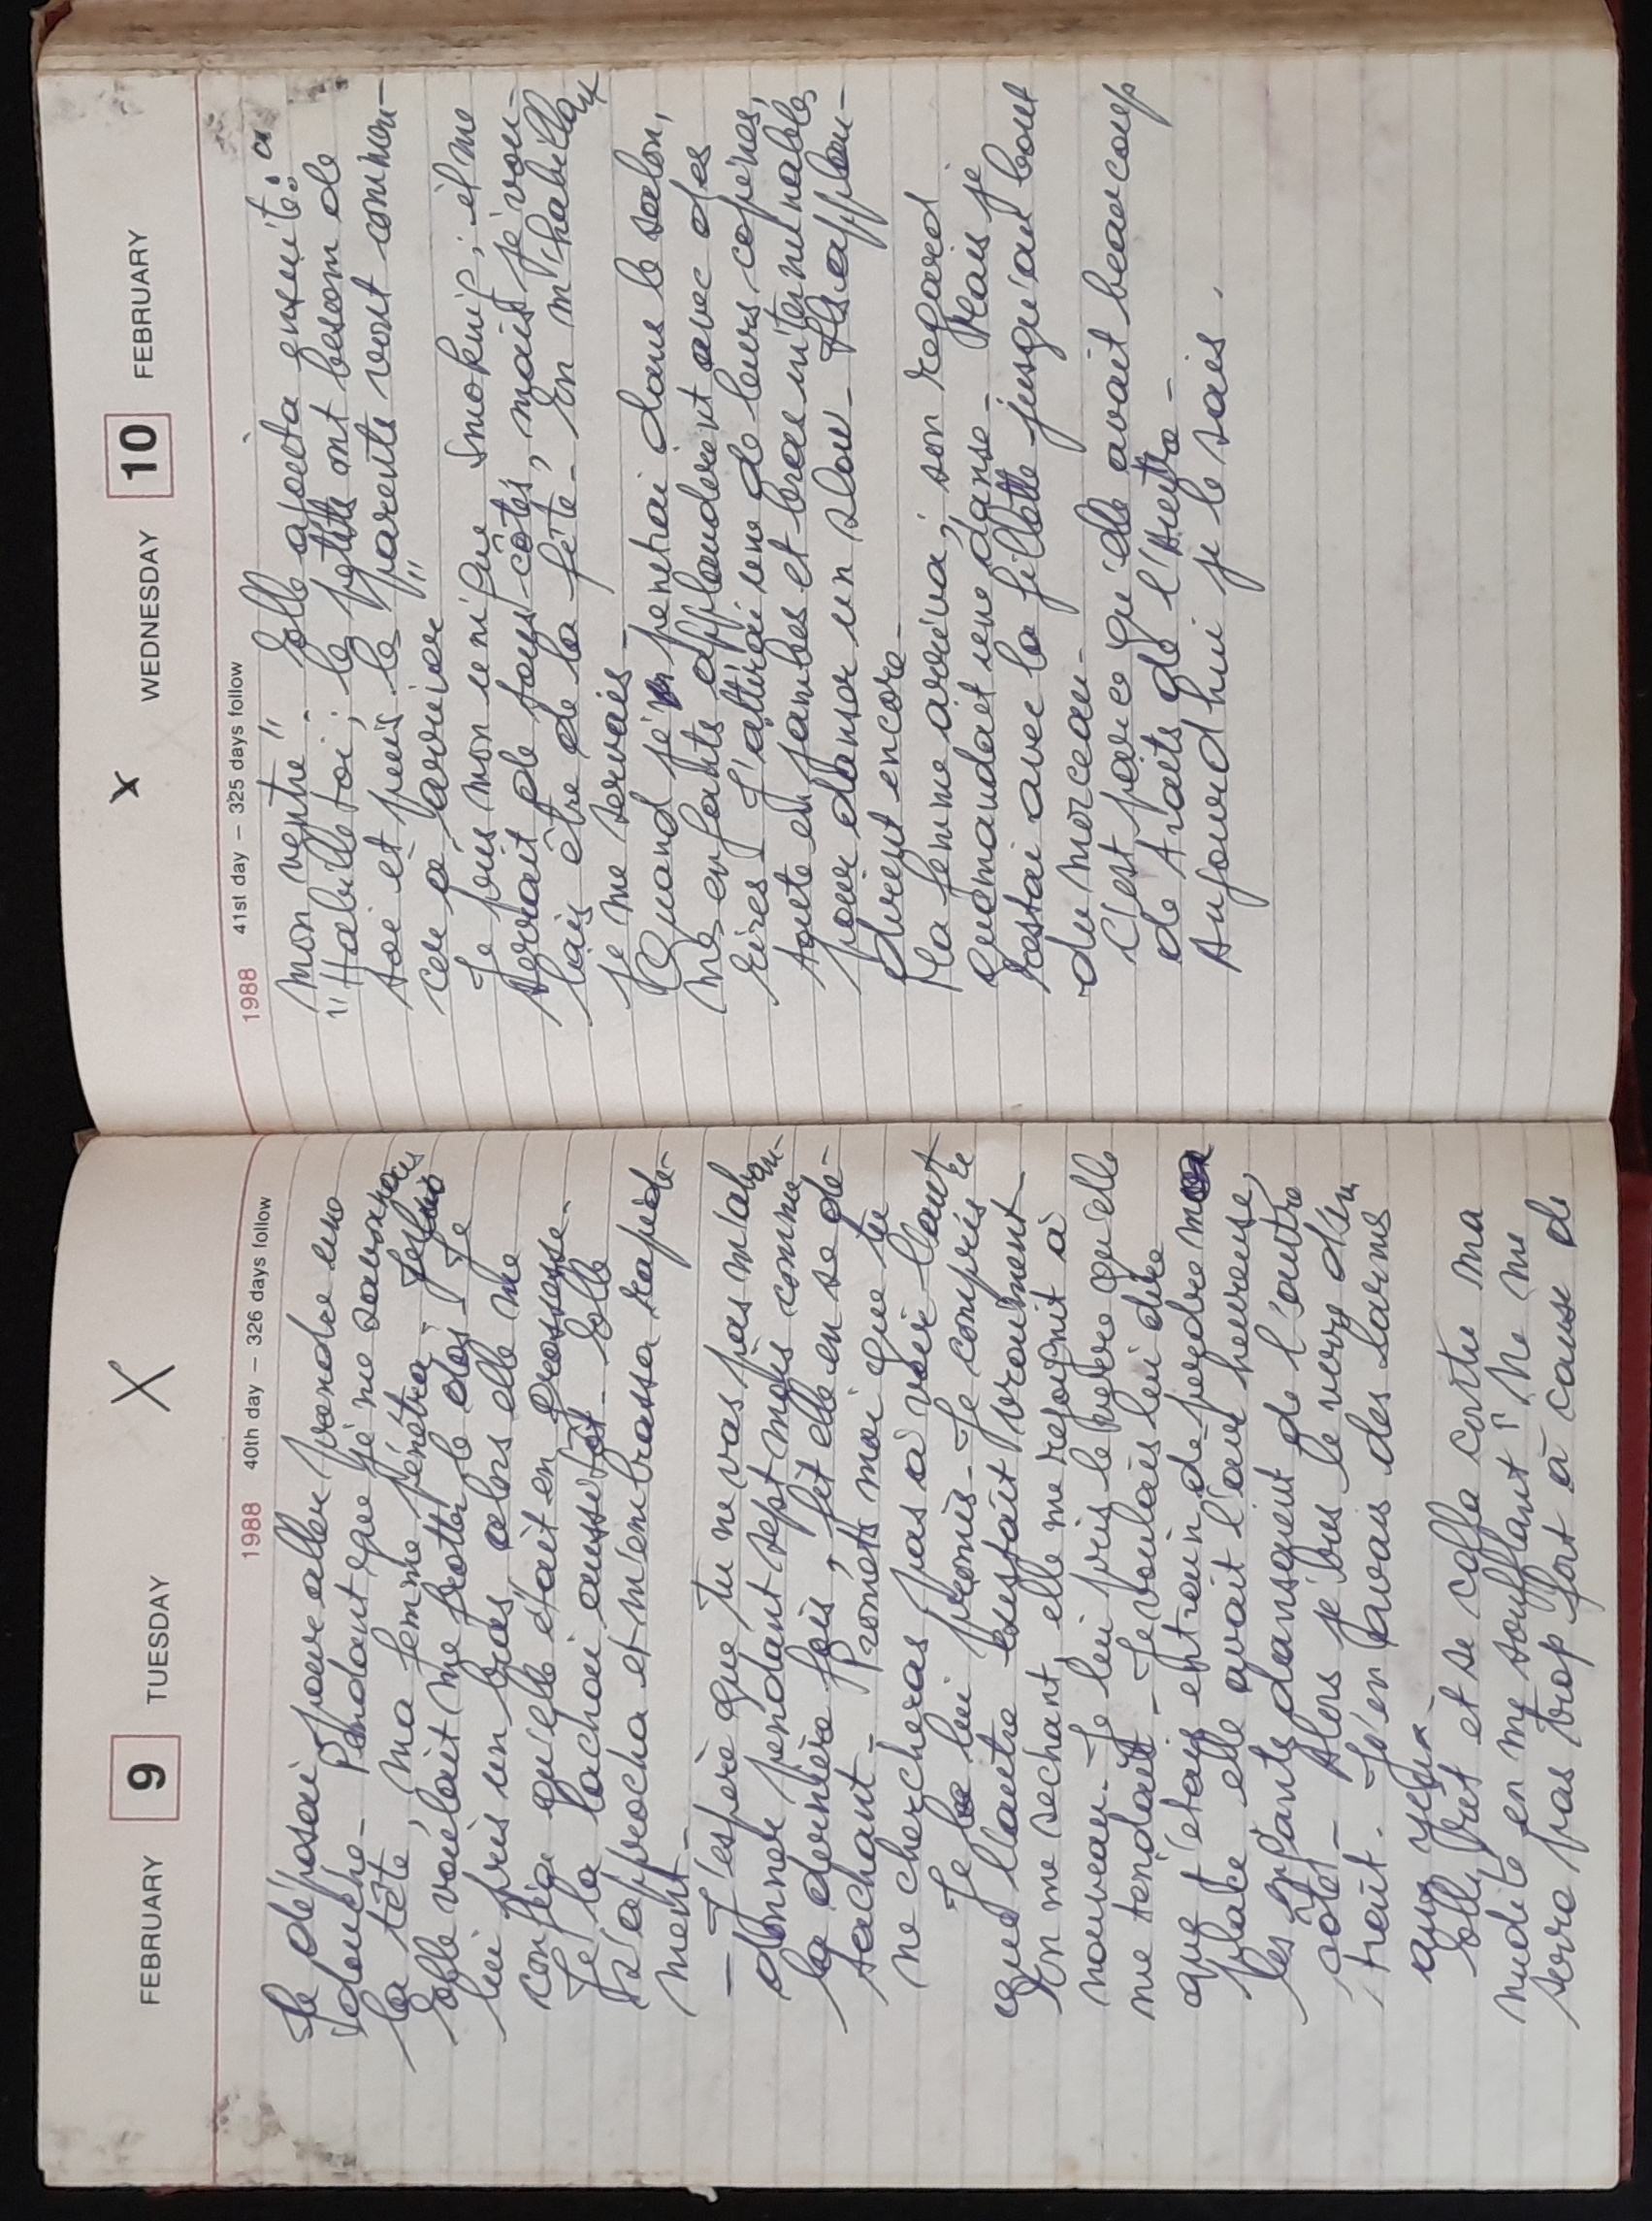 FEBRUARY 9 TUESDAY X
1988 40th day – 326 days follow
Je déposai pour aller prendre une
douche – Pendant que je me savonnais
la tête, ma femme pénétra –
elle voulait me frotter le dos – Je
lui pris un bras, alors elle me
confia qu'elle était en grossesse.
Je la lachai aussitôt – Elle
s'approcha et m'embrassa rapide-
ment –
– J'espère que tu ne vas pas m'aban-
donner pendant sept mois comme
la dernière fois, fit elle en se dé-
tachant – Promets moi que tu
ne chercheras pas à voir l'autre
Je le lui promis – Je compris
que l'autre existait vraiment –
En me sechant, elle me rejoignit à
nouveau – Je lui pris le verre qu'elle
me tendait – Je voulais lui dire
que j'étais entrain de perdre ma
place elle avait l'air heureuse,
les enfants dansaient de l'autre
côté – Alors je bus le verre d'un
trait. J'en avais des larmes
aux yeux –
Elle prit et se colla contre ma
nudité en me soufflant : "Ne me
serre pas trop fort à cause de
x WEDNESDAY 10 FEBRUARY
1988 41st day – 325 days follow
mon ventre" – Elle ajouta ensuite :
"Habille toi ; les petits ont besoin de
toi et puis les parents vont commen-
cer à arriver"
Je pris mon unique Smoking ; il me
serrait de tous côtés, mais je vou-
lais être de la fête – En m'habillant
je me servais –
Quand je penetrai dans le salon,
mes enfants applaudirent avec des
rires – J'attirai une de leurs copines,
toute en jambes et bras interminables
pour danser un slow – Ils applau-
dirent encore –
Ma femme arriva ; son regard
quémandait une danse – Mais je
restai avec la fillette jusqu'au bout
du morceau –
C'est parce qu'elle avait beaucoup
de traits de l'autre –
Aujourd'hui je le sais.